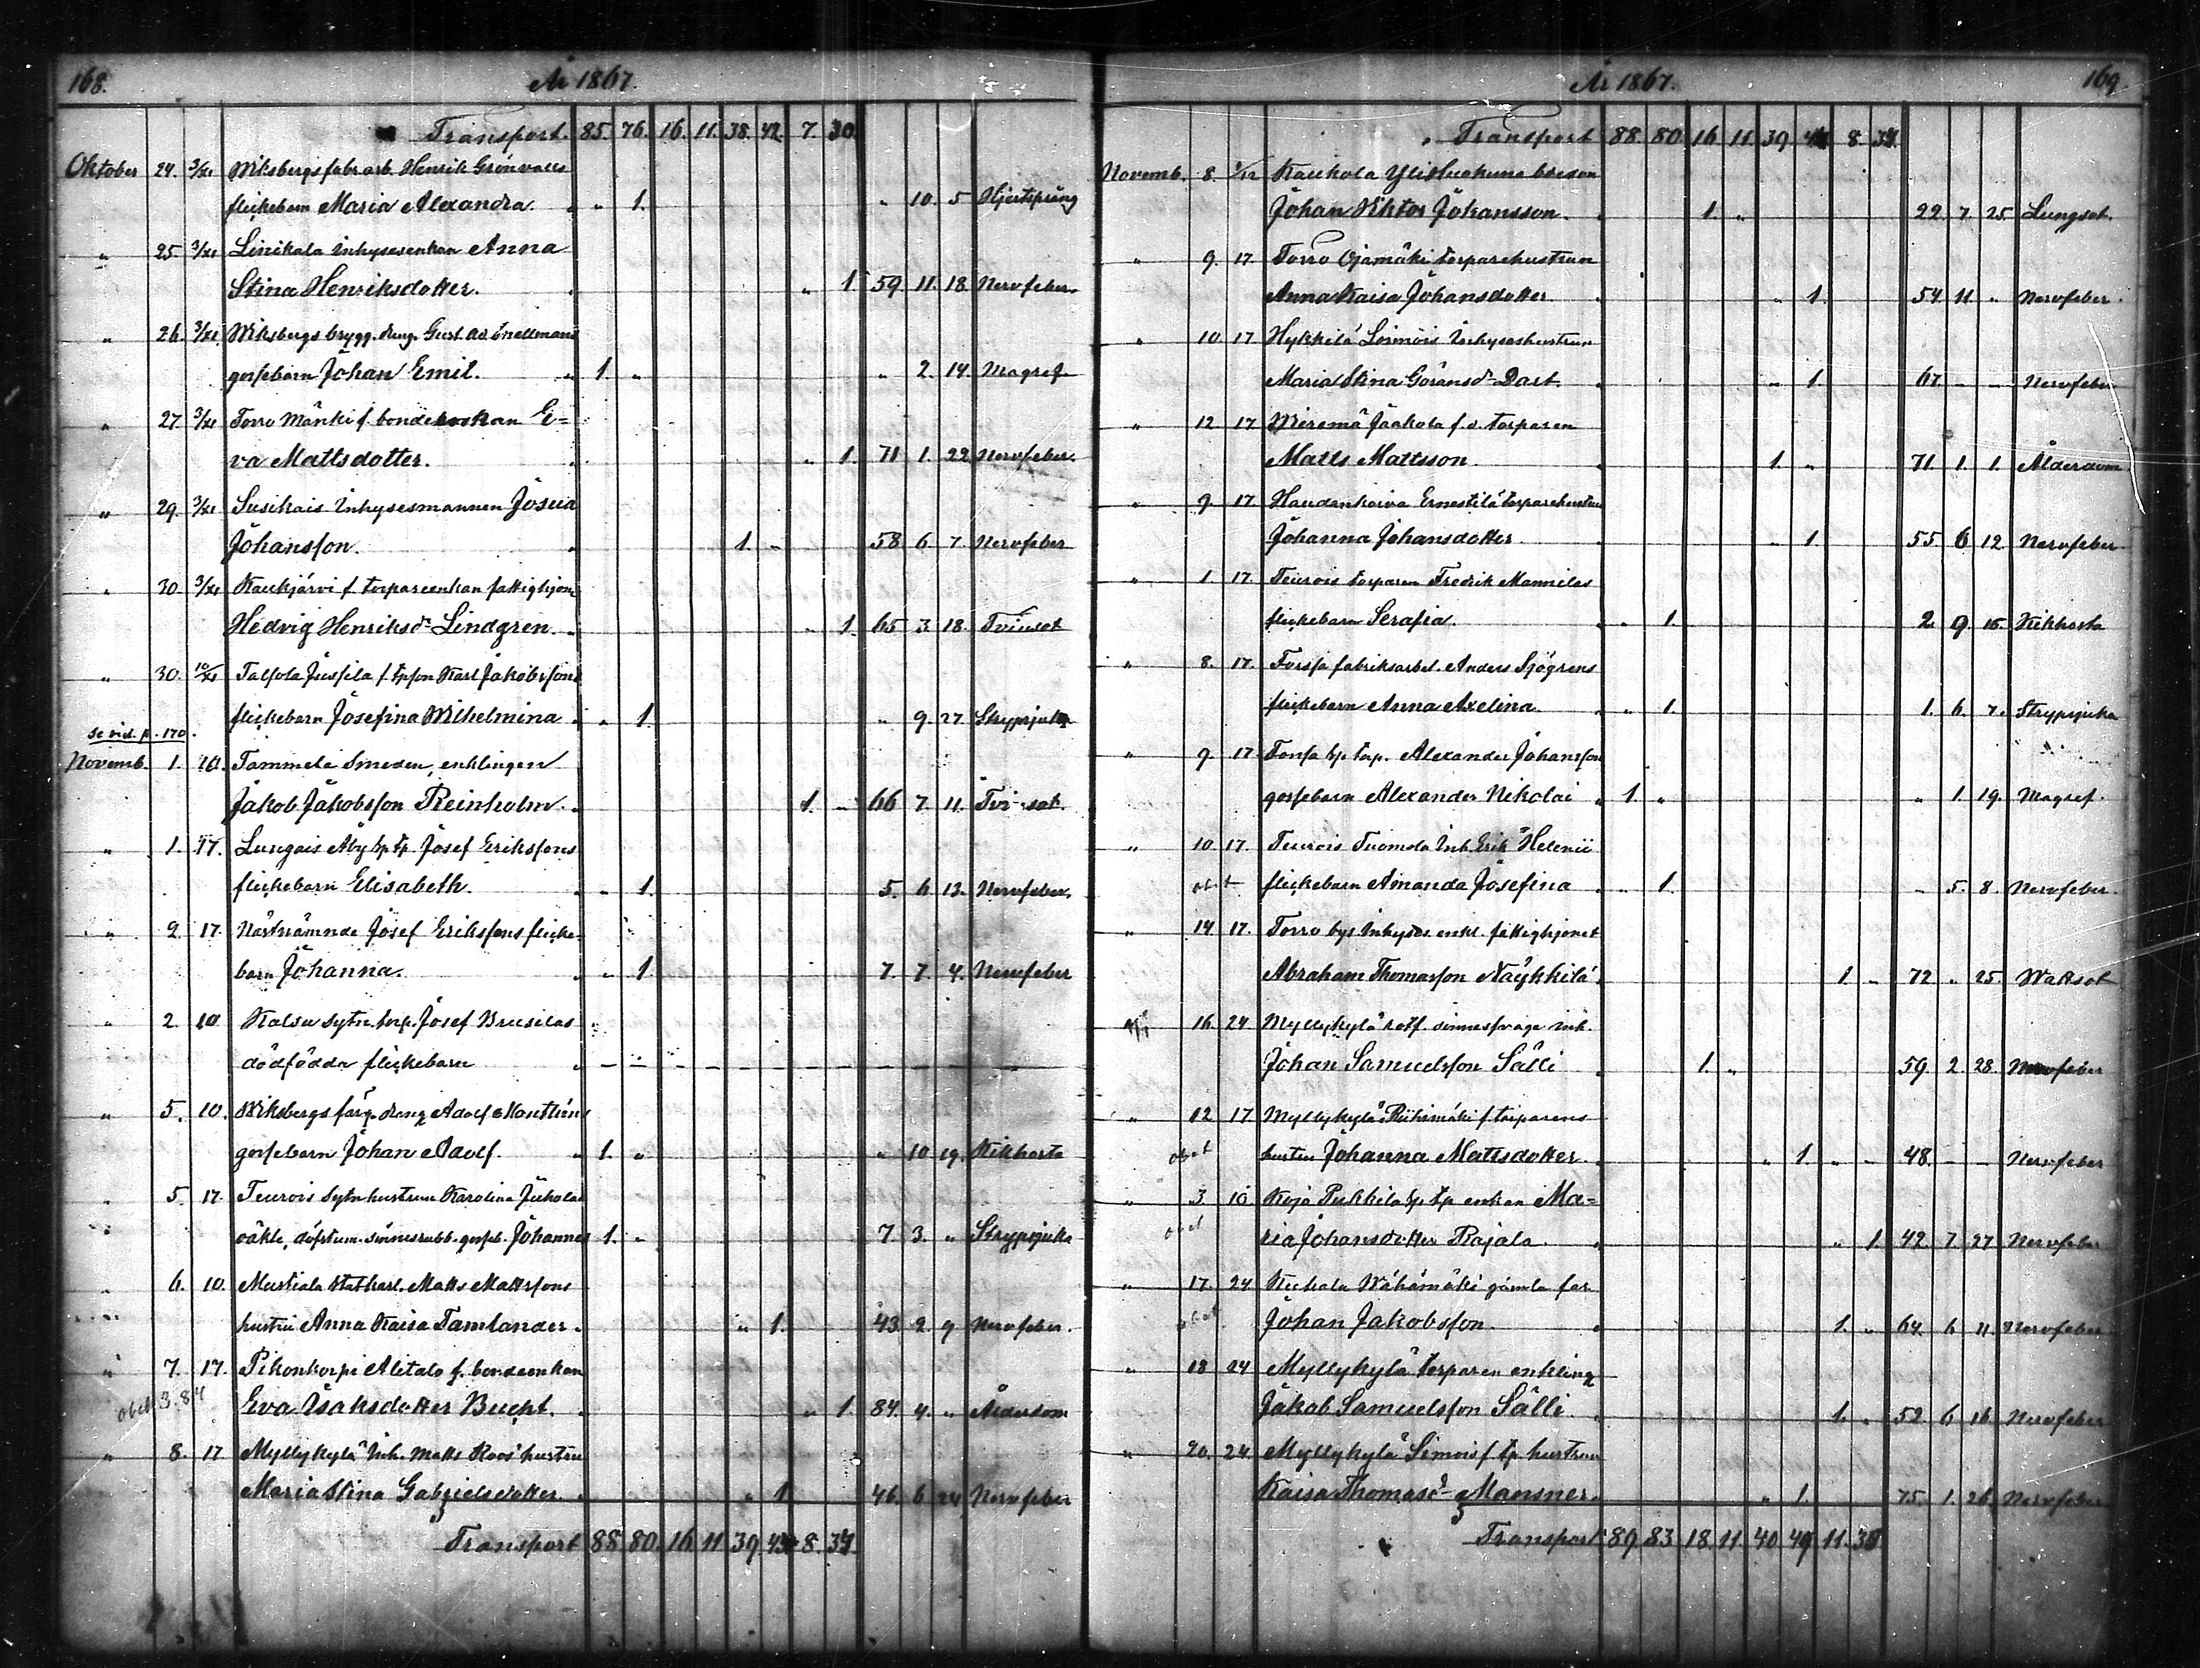 168. År 1867.
Transport. 85. 76. 16. 11. 38. 42. 7. 30.
Oktober 24. 3/XI Wiksbergs fabr.arb. Henrik Grönvalls
flickebarn Maria Alexandra. „ „ 1. „ 10. 5 Hjertspräng
„ 25. 3/XI Linikala Inhysesenkan Anna
Stina Henriksdotter. „ 1. 59. 11. 18. Nervfeber.
„ 26. 3/XI Wiksbergs brygg. dräng. Gust. Ad. Snellmans
gossebarn Johan Emil. „ 1. „ „ 2. 14. Magref.
„ 27 3/XI Torro Mänki f. bonde enkan E=
va Mattsdotter. „ 1. 71 1. 22. Nervfeber.
„ 29. 3/XI Susikais Inhysesmannen Josua
Johansson. 1. „ 58 6 7. Nervfeber
„ 30. 3/XI Kaukjärvi f torpareenkan fattighjon
Hedvig Henriksdr Lindgren. „ 1. 65 3. 18. Tvinsot
„ 30. 10/XI Talsola Jussila f. tpson Karl Jakobssons
flickebarn Josefina Wilhelmina „ „ 1. „ 9. 27. Strypsjuka
se vid. p. 170.
Novemb. 1. 10. Tammela Smeden, enklingen
Jakob Jakobsson Reinholm. 1. „ 66 7. 11. Tvinsot.
„ 1. 17. Lungois Åby bp tp Josef Erikssons
flickebarn Elisabeth. „ „ 1. 5. 6 13. Nervfeber.
„ 2 17. Nästnämnde Josef Erikssons flicke-
barn Johanna. „ „ 1. 7. 7. 4. Nervfeber
„ 2. 10. Kalsu sytn. torp. Josef Brusilas
dödfödda flickebarn „ – – – – – – –
„ 5. 10. Wiksbergs färg. dräng Adolf
gossebarn Johan Adolf. „ 1. „ „ 10 19. Kikhosta
„ 5 17. Teurois Sytn hustrun Karolina
oäkta, döfstum. sinnesrubb. gosseb. Johannes 1. „ 7. 3. „ Strypsjuka
6. 10. Mustiala Statkarl. Matts Mattssons
hustru Anna Kaisa Tamlander. „ 1. 43 2. 9 Nervfeber.
„ 7. 17. Pikonkorpi Alitalo f. bondeenkan
obet 3.84 Eva Isaksdotter Bucht. „ 1. 84. 4. „ Ålderdom
„ 8. 17 Myllykylä Inh. Matts Roos' hustru
Maria Stina Gabrielsdotter. „ 1. 46. 6 24. Nervfeber
Transport 88. 80. 16 11. 39. 8.

År 1867. 169.
Transport 88. 80. 16 11. 39 8.
Novemb. 8. Kaukola Ylistuohuna bdeson
Johan Viktor Johansson. 1. „ 22. 7. 25. Lungsot.
„ 9. 17. Torro Ojamäki torparehustrun
Anna Kaisa Johansdotter „ 1. 54 11 „ Nervfeber.
„ 10 17 Hykkilä Loimois Inhyseshustrun
Maria Stina Göransdr Dast. „ 1. 67. – – Nervfeber
„ 12 17 Jaakola f.d. torparen
Matts Mattsson. 1. „ 71. 1. 1. Ålderdom
„ 9. 17. Haudankorva Ernestilä torparehustru
Johanna Johansdotter. „ 1. 55 6 12 Nervfeber
„ 1. 17. Teurois torparen Fredrik Mannilas
flickebarn Serafia. „ „ 1. 2. 9. 15. Kikhosta
„ 8. 17. Forssa fabriksarbet. Anders Sjögrens
flickebarn Anna Axelina. „ „ 1. 1. 6. 7. Strypsjuka
„ 9. 17. Torssa bp torp. Alexander Johansson
gossebarn Alexander Nikolai „ 1. „ „ 1. 19. Magref.
„ 10 17. Teurois Tuomola Inh. Erik Helenii
obet flickebarn Amanda Josefina „ „ 1. „ 5. 8. Nervfeber.
„ 14 17. Torro bys Inhyses enkl. fattighjonet
Abraham Thomasson Näykkilä. 1. „ 72 „ 25. Wattsot
16. 24 Myllykylä sinnessvage inh.
Johan Samuelsson Sälli 1. „ 59. 2. 28. Nervfeber
„ 12 17 Myllykylä Riihimäki f. torparens
obet hustru Johanna Mattsdotter. „ 1. „ „ 48. – – Nervfeber
„ 3 10 Koja Pukkila bp tp enkan Ma=
obet ria Johansdotter Rajala. „ 1. 42. 7. 27 Nervfeber
„ 17. 24 Kuhala Wähämäki gamla far
obet Johan Jakobsson. 1. „ 64. 6 11. Nervfeber
„ 18 24 Myllykylä torparen enkling
Jakob Samuelsson Sälli. 1. „ 52. 6 16 Nervfeber
„ 20. 24. Myllykylä Simois f. tp. hustrun
Kaisa Thomasdr Mansner. „ 1. 75. 1. 26 Nervfeber
Transport 89. 83. 18. 11. 40. 49. 11.